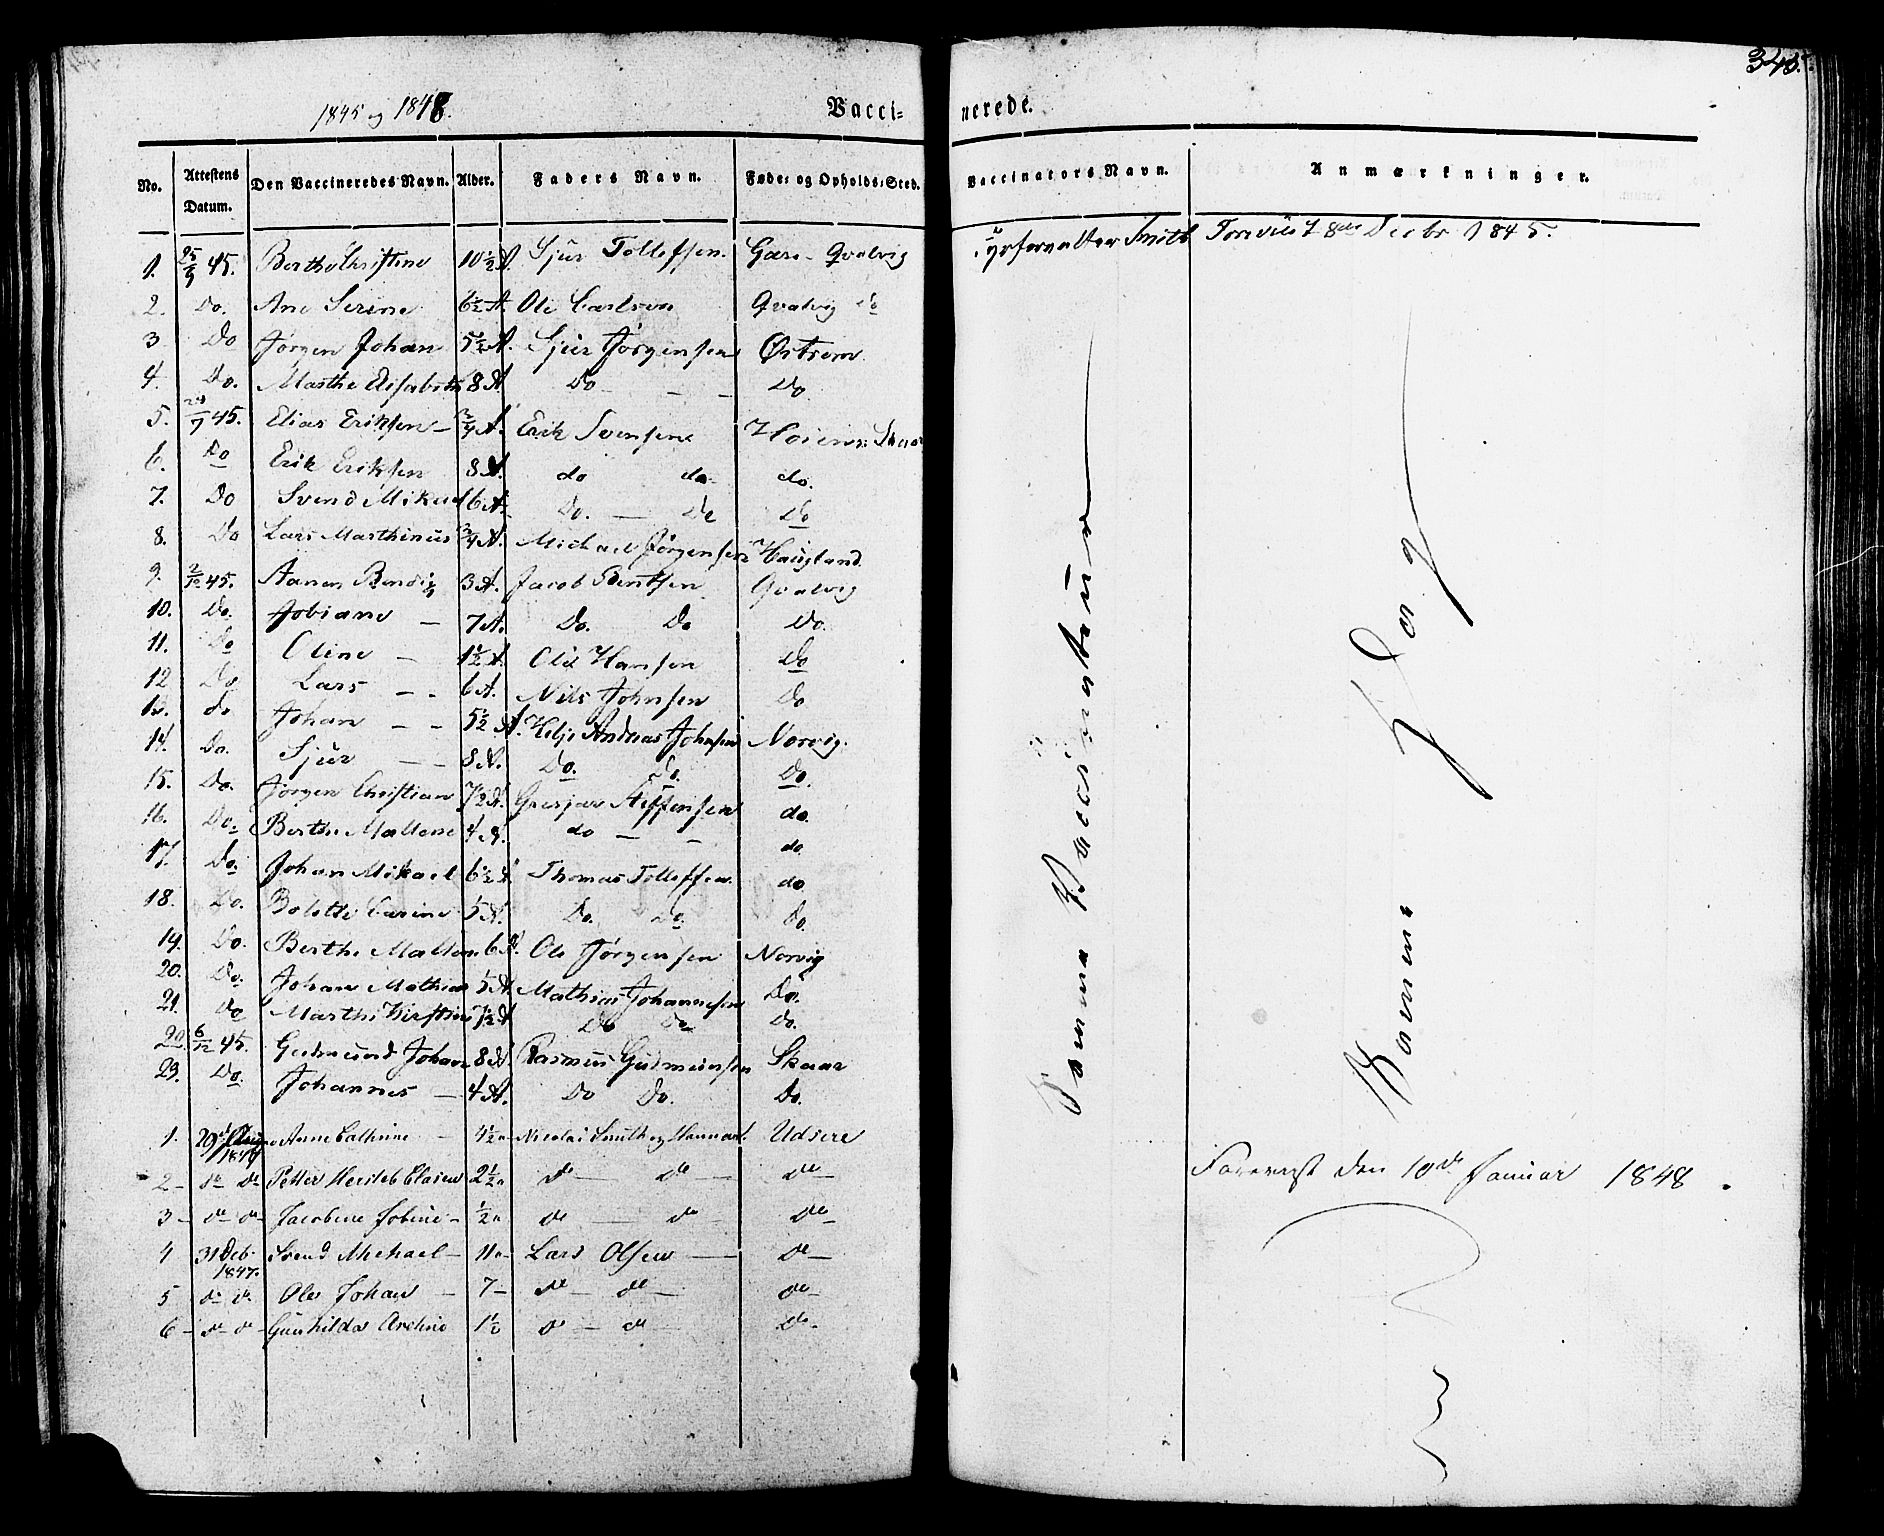 340.
1845 og 1848.
Vacci-
nerede.
No. Attestens Datum. Den Vaccineredes Navn. Alder. Faders Navn. Føde- og Opholds-Sted. Vaccinators Navn. Anmærkninger.
1. 25/9 45. Berthe Christine 10 1/2 A. Sjur Tollefsen. Qvalvig Smith Foreviist 8de Decbr 1845.
2. Do. Ane Serine 6 1/2 A. Ole Carlsen Qvalvig do
3 Do Jørgen Johan 5 1/2 A. Sjur Jørgensen Østrem
4. Do. Marthe Elisabeth 8 A Do - - Do.
5. /7 45. Elias Eriksen - 3/4 A. Erik Svensen
6. Do Erik Eriksen 8 A. do do. do.
7. Do Svend Mikael 6 A. Do. - Do Do
8. Do Lars Marthinus 3/4 A. Michael Jørgensen Haugland
9. 2/12 45. Aanen Bendix 3 A. Jacob Bentsen Qvalvig
10. Do. Jobiane - 7 A. Do. Do Do.
11. Do Oline - 1 1/2 A. Ole Hansen Do
12 Do Lars - - 6 A. Nils Johnsen Do
13. do Johan - - 5 1/2 A. Helje Andreas Johnsen Norvig.
14. Do. Sjur - - 8 A. Do. Do. Do.
15. Do. Jørgen Christian 7 1/2 A. Steffensen do.
16. Do. Berthe Maltene 4 A. do - - do.
17. Do. Johan Mikael 6 1/2 A Thomas Tollefsen. do
18. Do. Bolette Carine 5 A. Do. Do. Do.
19. Do. Berthe Maltene 6 A. Ole Jørgensen Norvig
20. Do. Johan Mathias 5 A. Mathias Johannesen Do.
21. Do Marthe Kirstine 7 1/2 A Do Do Do.
22. 6/12 45. Gudmund Johan 8 A. Rasmus Gudmunsen Skaar
23. Do. Johannes - 4 A. Do Do. Do.
1. 29 1847 Anne Cathrine - 4 1/2 a Nicolai Smith og Udsire
2 - do do Petter Hersleb Clasen 2 1/2 a do - do - do -
3 - do do - Jacobine Jobine - 1/2 a do - do - do -
4 31 Deb. 1847. Svend Michael - 11 a - Lars Olsen - do -
5 do do Ole Johan - 7 - do - do - do -
6 - do do - Gunhilda 1 1/2 do - do - do -
Samme Vaccinateur
Samme Dag
Forevist den 10de Januar 1848.